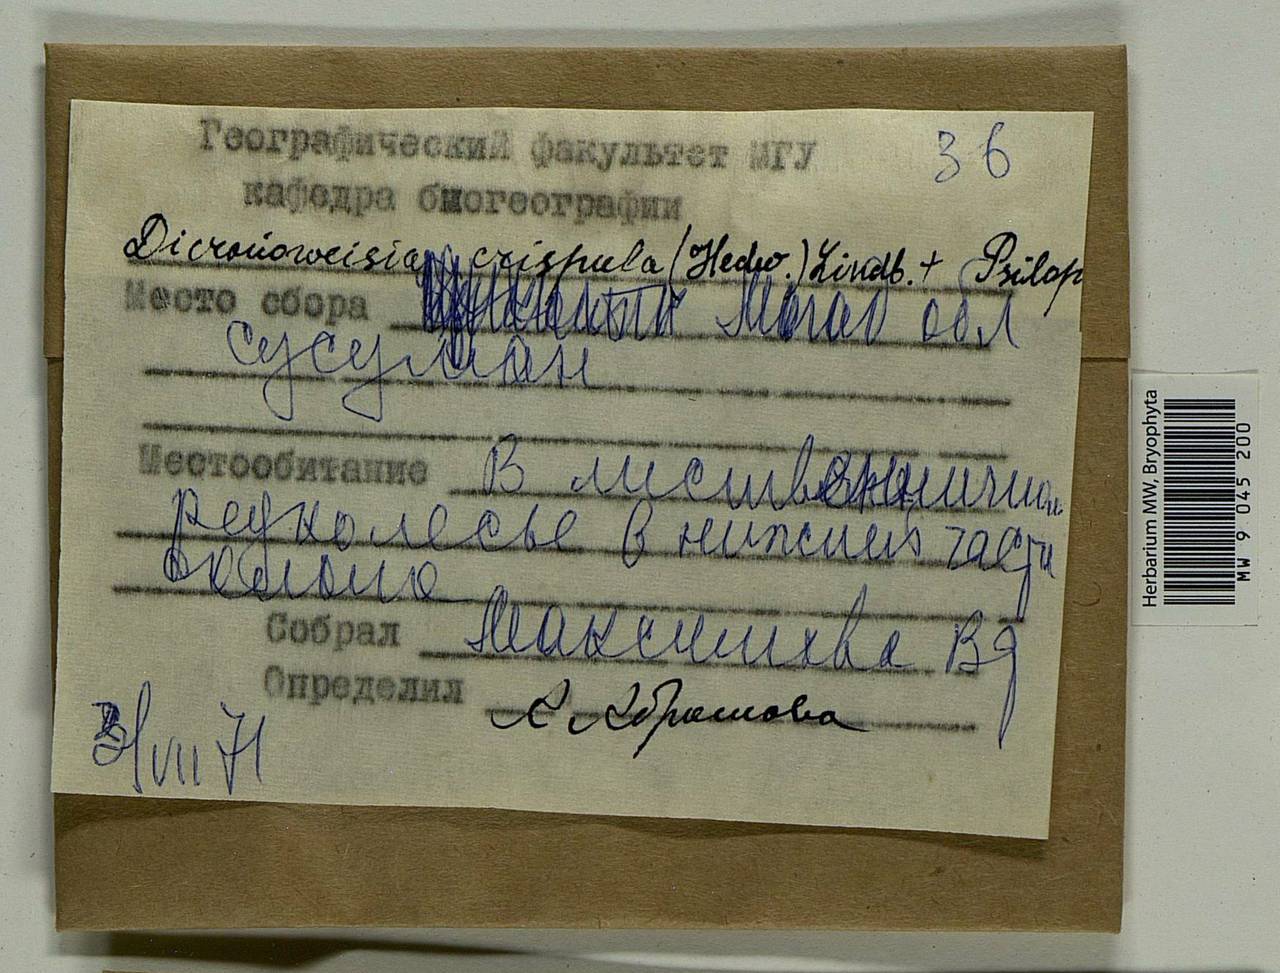 Географический факультет МГУ
36
кафедра биогеографии
Dicranoweisia crispula (Hedw.) Lindb. + Psilop
Место сбора Магад обл
Сусуман
Местообитание В лиственничном
редколесье в нижней части
склона
Собрал Максимова В
Определил А Абрамова
VII 71
Herbarium MW, Bryophyta
MW 9 045 200